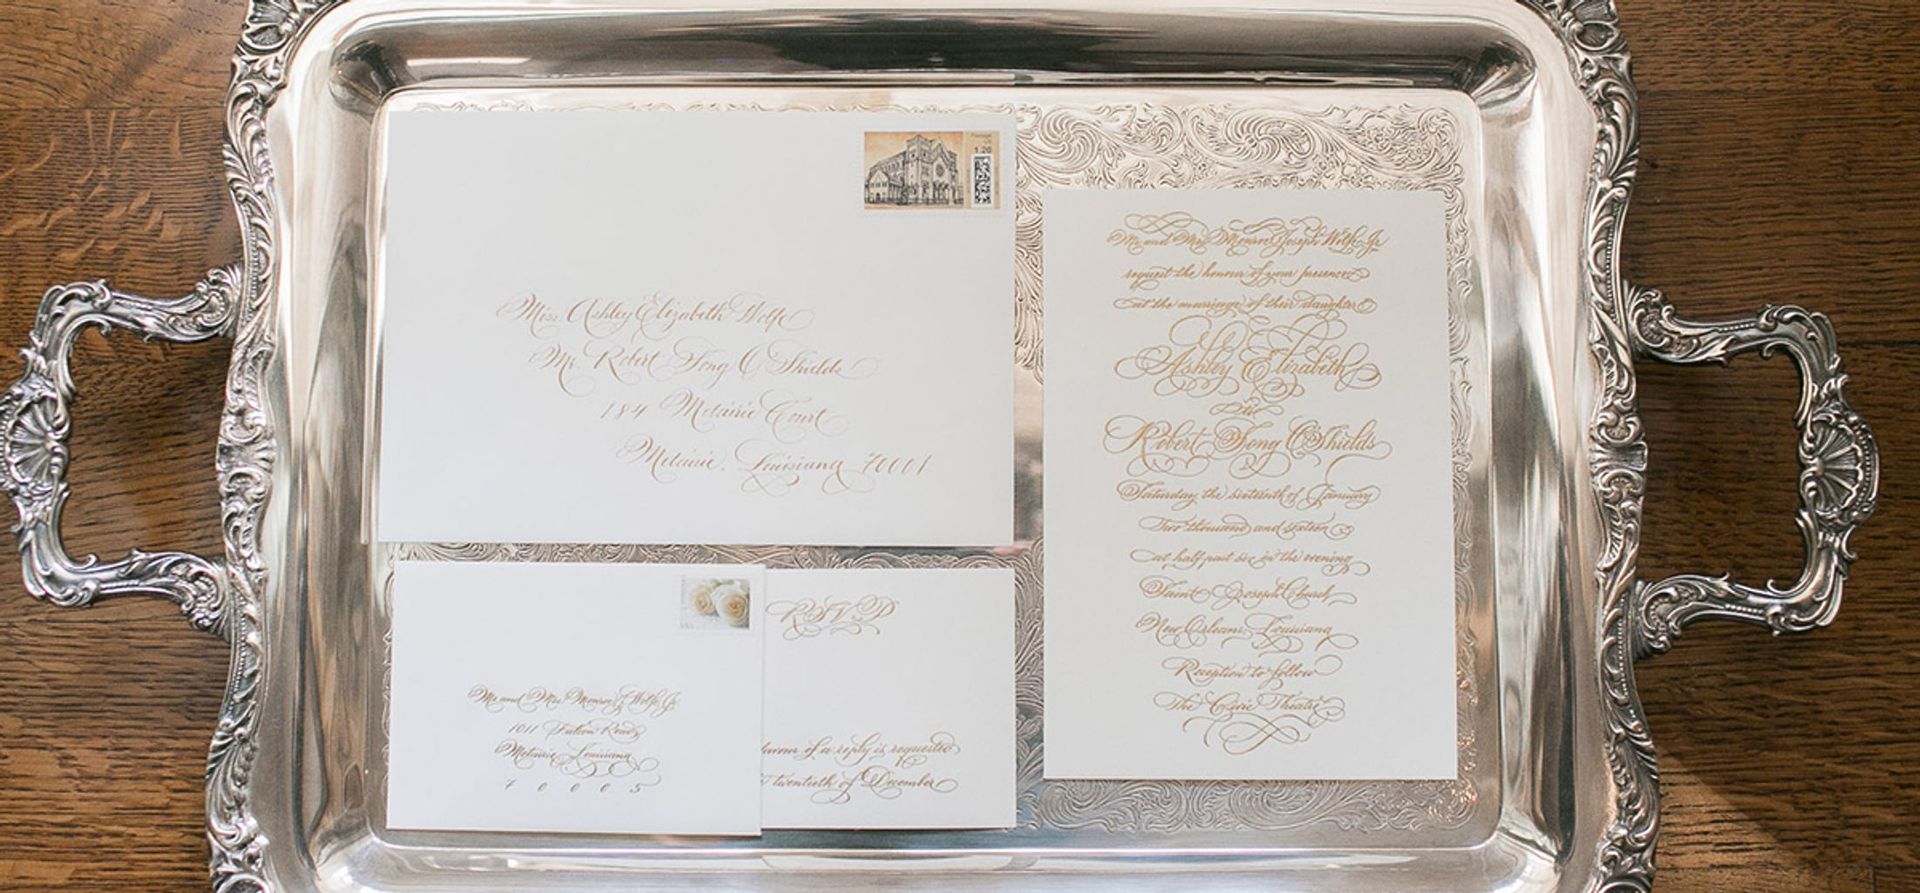 Postage
US
1.20
Miss Ashley Elizabeth Wolfe
Mr. Robert Tong O'Shields
184 Metairie Court
Metairie, Louisiana 70001
Mr. and Mrs. Monroe Joseph Wolfe, Jr.
request the honour of your presence
at the marriage of their daughter
Ashley Elizabeth
to
Robert Tong O'Shields
Saturday, the sixteenth of January
Two thousand and sixteen
at half past six in the evening
Saint Joseph Church
New Orleans, Louisiana
Reception to follow
The Civic Theatre
USA
Mr. and Mrs. Monroe J. Wolfe, Jr.
1011 Road
Metairie, Louisiana
70005
RSVP
favour of a reply is requested
twentieth of December